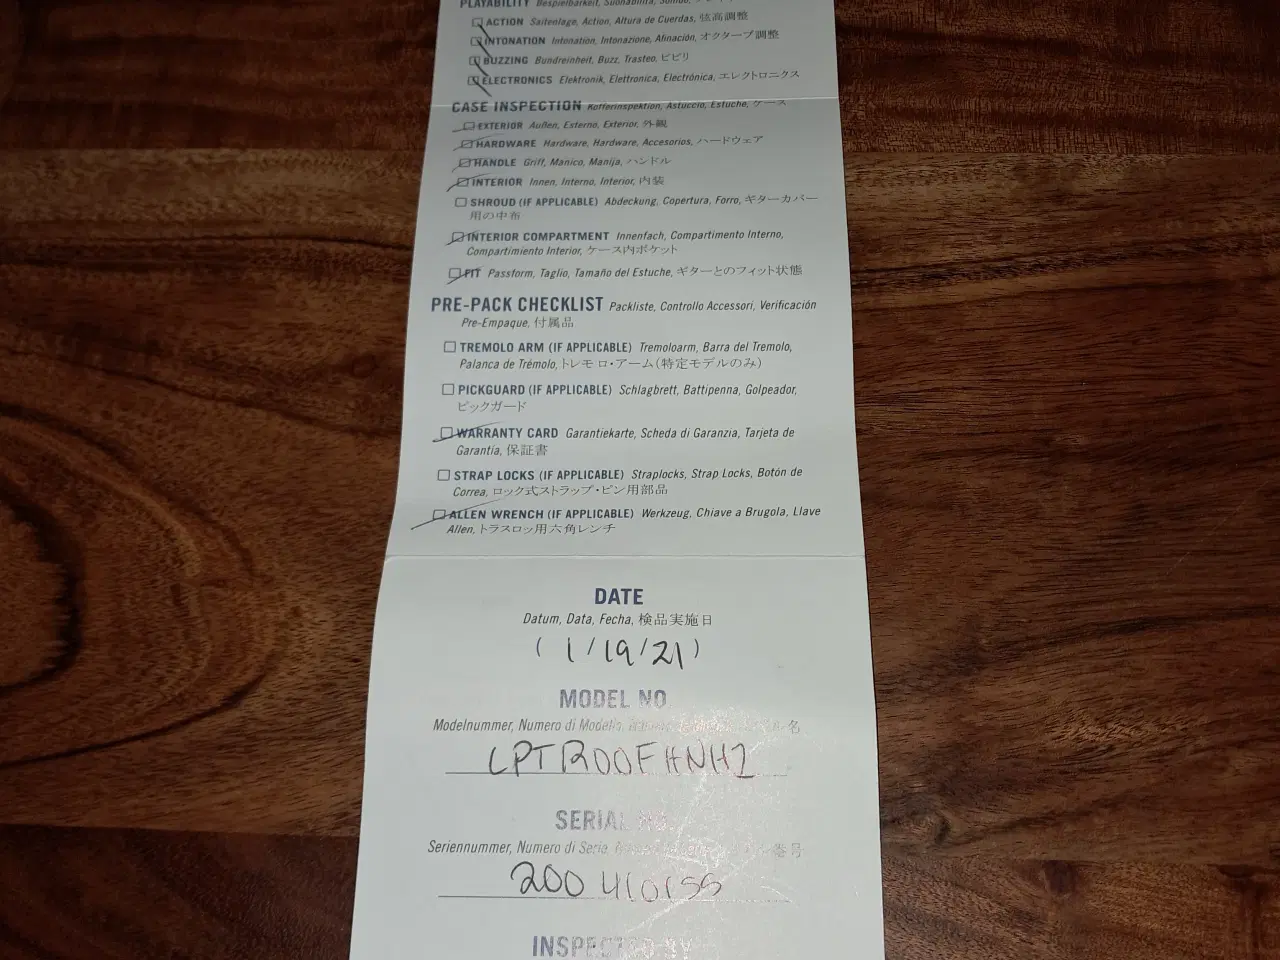 PLAYABILITY Bespielbarkeit, Suonabilità,
ACTION Saitenlage, Action, Altura de Cuerdas, 弦高調整
INTONATION Intonation, Intonazione, Afinación, オクターブ調整
BUZZING Bundreinheit, Buzz, Trasteo, ビビリ
ELECTRONICS Elektronik, Elettronica, Electrónica, エレクトロニクス
CASE INSPECTION Kofferinspektion, Astuccio, Estuche, ケース
EXTERIOR Außen, Esterno, Exterior, 外観
HARDWARE Hardware, Hardware, Accesorios, ハードウェア
HANDLE Griff, Manico, Manija, ハンドル
INTERIOR Innen, Interno, Interior, 内装
SHROUD (IF APPLICABLE) Abdeckung, Copertura, Forro, ギターカバー
用の中布
INTERIOR COMPARTMENT Innenfach, Compartimento Interno,
Compartimiento Interior, ケース内ポケット
FIT Passform, Taglio, Tamaño del Estuche, ギターとのフィット状態
PRE-PACK CHECKLIST Packliste, Controllo Accessori, Verificación
Pre-Empaque, 付属品
TREMOLO ARM (IF APPLICABLE) Tremoloarm, Barra del Tremolo,
Palanca de Trémolo, トレモロ・アーム(特定モデルのみ)
PICKGUARD (IF APPLICABLE) Schlagbrett, Battipenna, Golpeador,
ピックガード
WARRANTY CARD Garantiekarte, Scheda di Garanzia, Tarjeta de
Garantía, 保証書
STRAP LOCKS (IF APPLICABLE) Straplocks, Strap Locks, Botón de
Correa, ロック式ストラップ・ピン用部品
ALLEN WRENCH (IF APPLICABLE) Werkzeug, Chiave a Brugola, Llave
Allen, トラスロッ用六角レンチ
DATE
Datum, Data, Fecha, 検品実施日
(1/19/21)
MODEL NO
Modelnummer, Numero di Modello, 名
LPTR00FHNH1
SERIAL NO
Seriennummer, Numero di Serie, 番号
200410155
INSPECTED BY